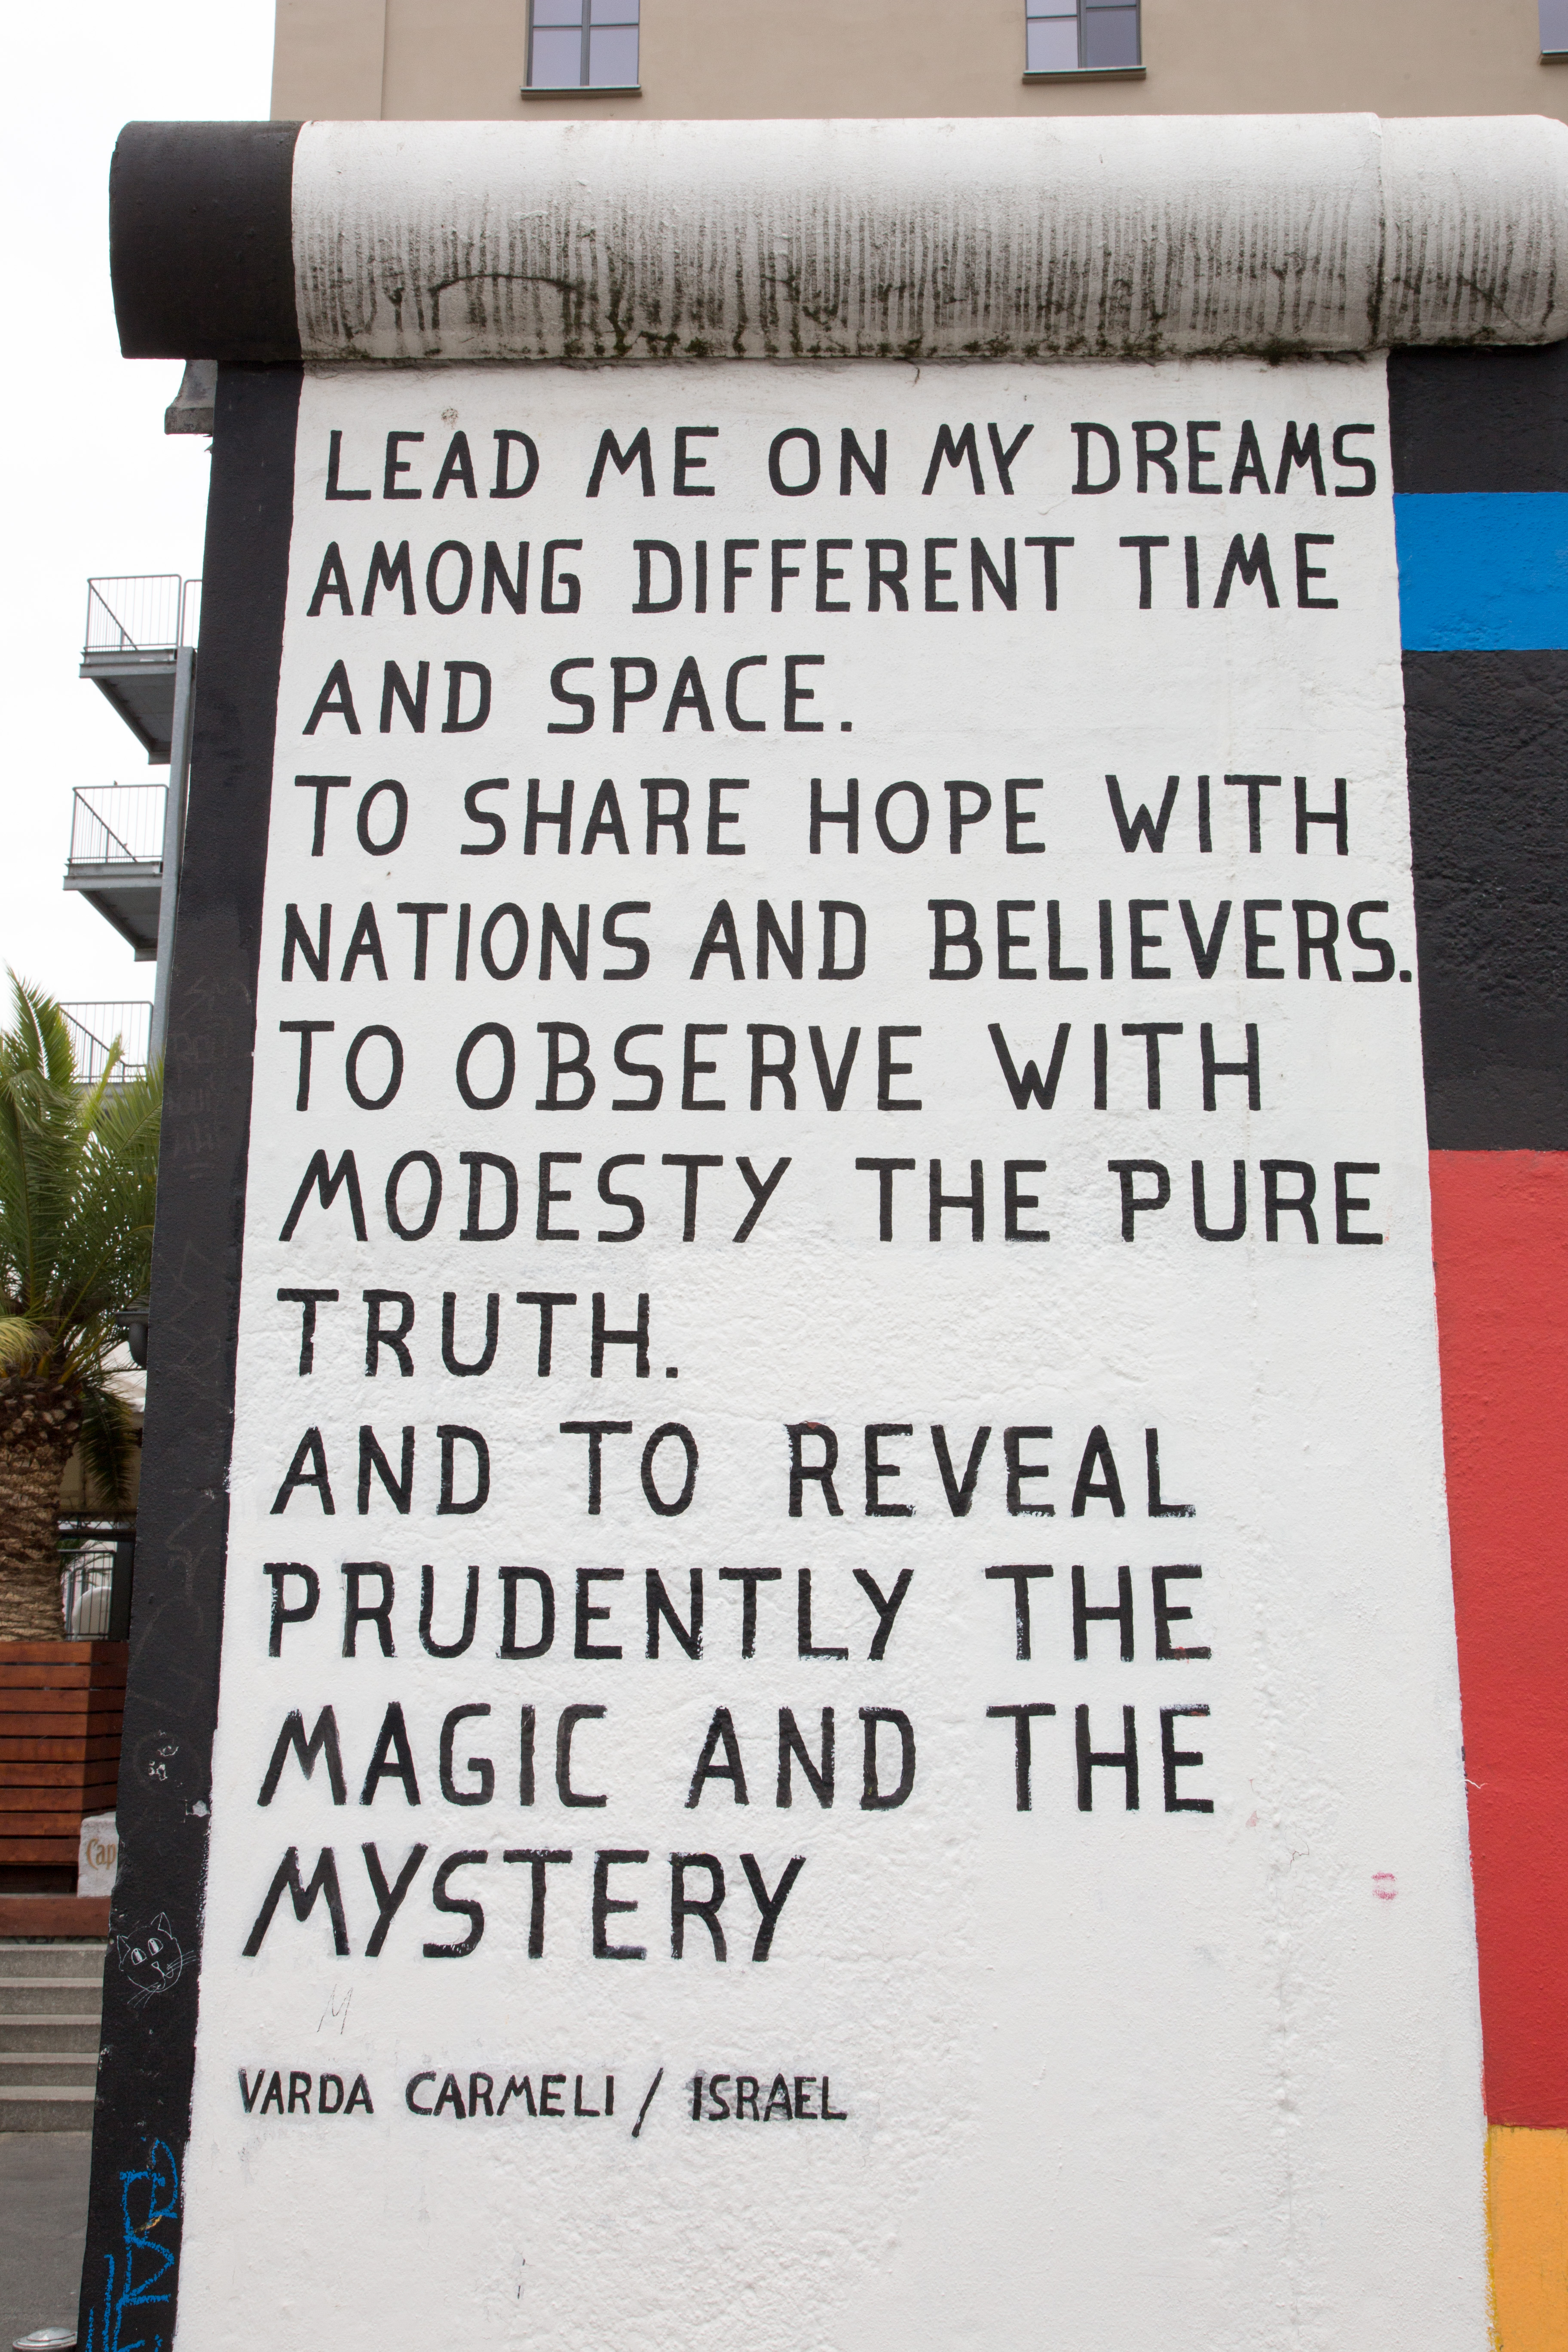 LEAD ME ON MY DREAMS
AMONG DIFFERENT TIME
AND SPACE.
TO SHARE HOPE WITH
NATIONS AND BELIEVERS.
TO OBSERVE WITH
MODESTY THE PURE
TRUTH.
AND TO REVEAL
PRUDENTLY THE
MAGIC AND THE
MYSTERY
M
VARDA CARMELI / ISRAEL